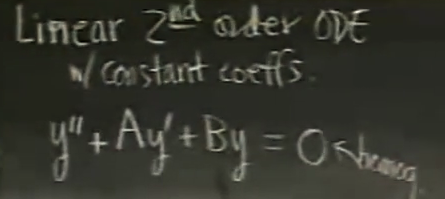 Linear 2nd order ODE
w/ constant coeffs.
y" + Ay' + By = 0 ← homog.